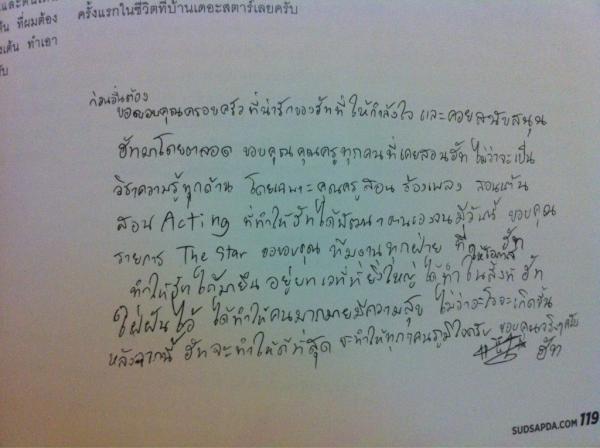 และคนไหน
ครั้งแรกในชีวิตที่บ้านเดอะสตาร์เลยครับ
ที่ผมต้อง
เต้น ทำเอา
ก่อนอื่นต้อง
ขอขอบคุณครอบครัวที่น่ารักของฮัทที่ให้กำลังใจ และคอยสนับสนุน
ฮัทมาโดยตลอด ขอบคุณคุณครูทุกคนที่เคยสอนฮัท ไม่ว่าจะเป็น
วิชาความรู้ทุกด้าน โดยเฉพาะคุณครูสอนร้องเพลง สอนเต้น
สอน Acting ที่ทำให้ฮัทได้พัฒนาตนเองจนมีวันนี้ ขอบคุณ
รายการ The Star ขอขอบคุณ ทีมงานทุกฝ่าย ที่ให้โอกาสฮัท
ทำให้ฮัทได้มายืนอยู่บนเวทีที่ยิ่งใหญ่ ได้ทำในสิ่งที่ฮัท
ใฝ่ฝันไว้ ได้ทำให้คนมากมายมีความสุข ไม่ว่าอะไรจะเกิดขึ้น
หลังจากนี้ ฮัทจะทำให้ดีที่สุด จะทำให้ทุกๆคนภูมิใจครับ ขอบคุณจริงๆครับ
ฮัท
SUDSAPDA.COM 119